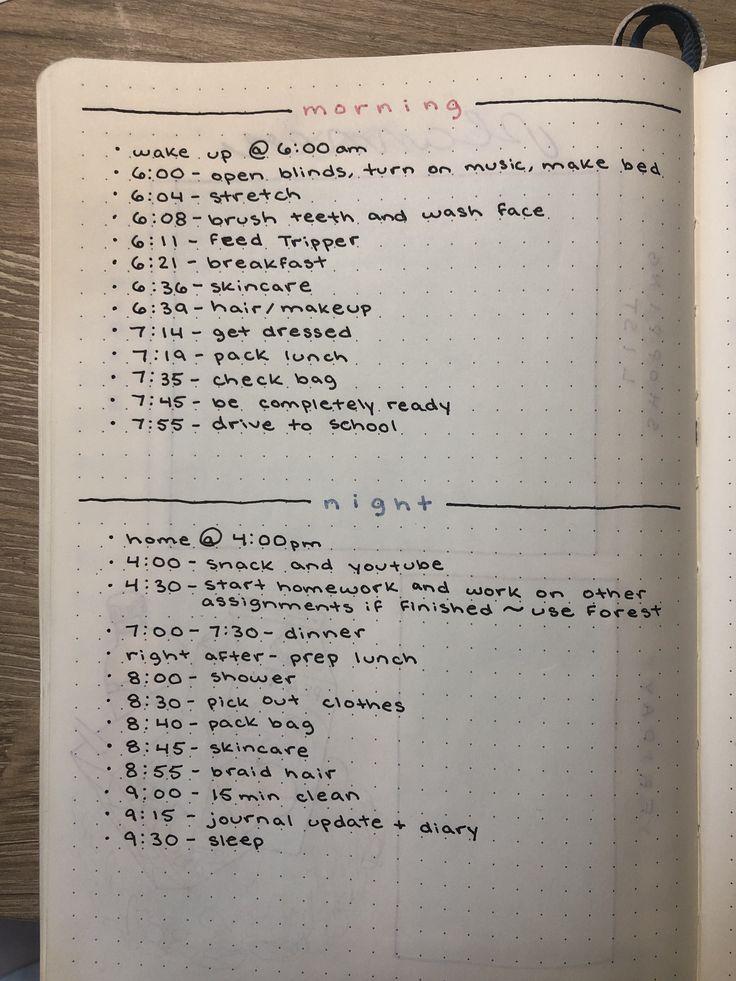 morning
• wake up @ 6:00am
• 6:00 - open blinds, turn on music, make bed
• 6:04 - stretch
• 6:08 - brush teeth and wash face
• 6:11 - feed Tripper
• 6:21 - breakfast
• 6:36 - skincare
• 6:39 - hair/makeup
• 7:14 - get dressed
• 7:19 - pack lunch
• 7:35 - check bag
• 7:45 - be completely ready
• 7:55 - drive to school
night
• home @ 4:00pm
• 4:00 - snack and youtube
• 4:30 - start homework and work on other
assignments if finished ~ use Forest
• 7:00 - 7:30 - dinner
• right after - prep lunch
• 8:00 - shower
• 8:30 - pick out clothes
• 8:40 - pack bag
• 8:45 - skincare
• 8:55 - braid hair
• 9:00 - 15 min clean
• 9:15 - journal update + diary
• 9:30 - sleep
SHOPPING
LIST